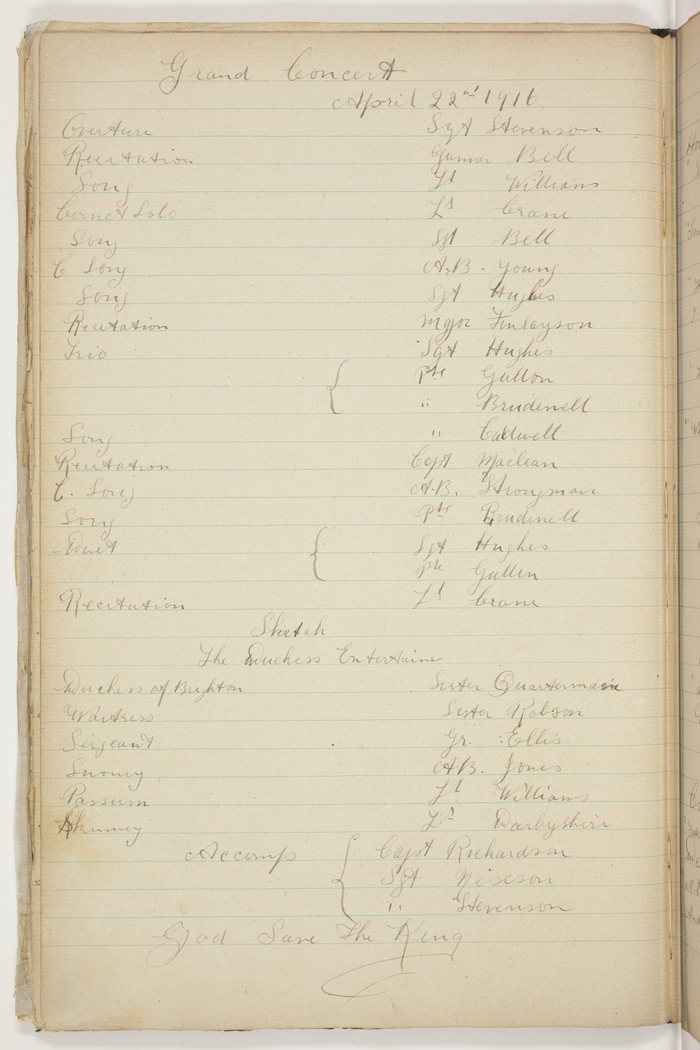 Grand Concert
April 22nd 1916
Overture Sgt Stevenson
Recitation Gunner Bell
Song Lt Williams
Cornet Solo Lt Crane
Song Sgt Bell
C Song A.B. Young
Song Sgt Hughes
Recitation Major Finlayson
Trio Sgt Hughes
Pte Gullon
" Brudenell
Song " Caldwell
Recitation Capt Maclean
C. Song A.B. Strongman
Song Pte Brudenell
Duet Sgt Hughes
Pte Gullen
Recitation Lt Crane
Sketch
The Duchess Entertains
Duchess of Brighton Sister Quartermaine
Waitress Sister Robson
Sergeant Gr. Ellis
Snowy A.B. Jones
Possum Lt Williams
Skinney Lt Darbyshire
Accomps Capt Richardson
Sgt Nixson
" Stevenson
God Save The King